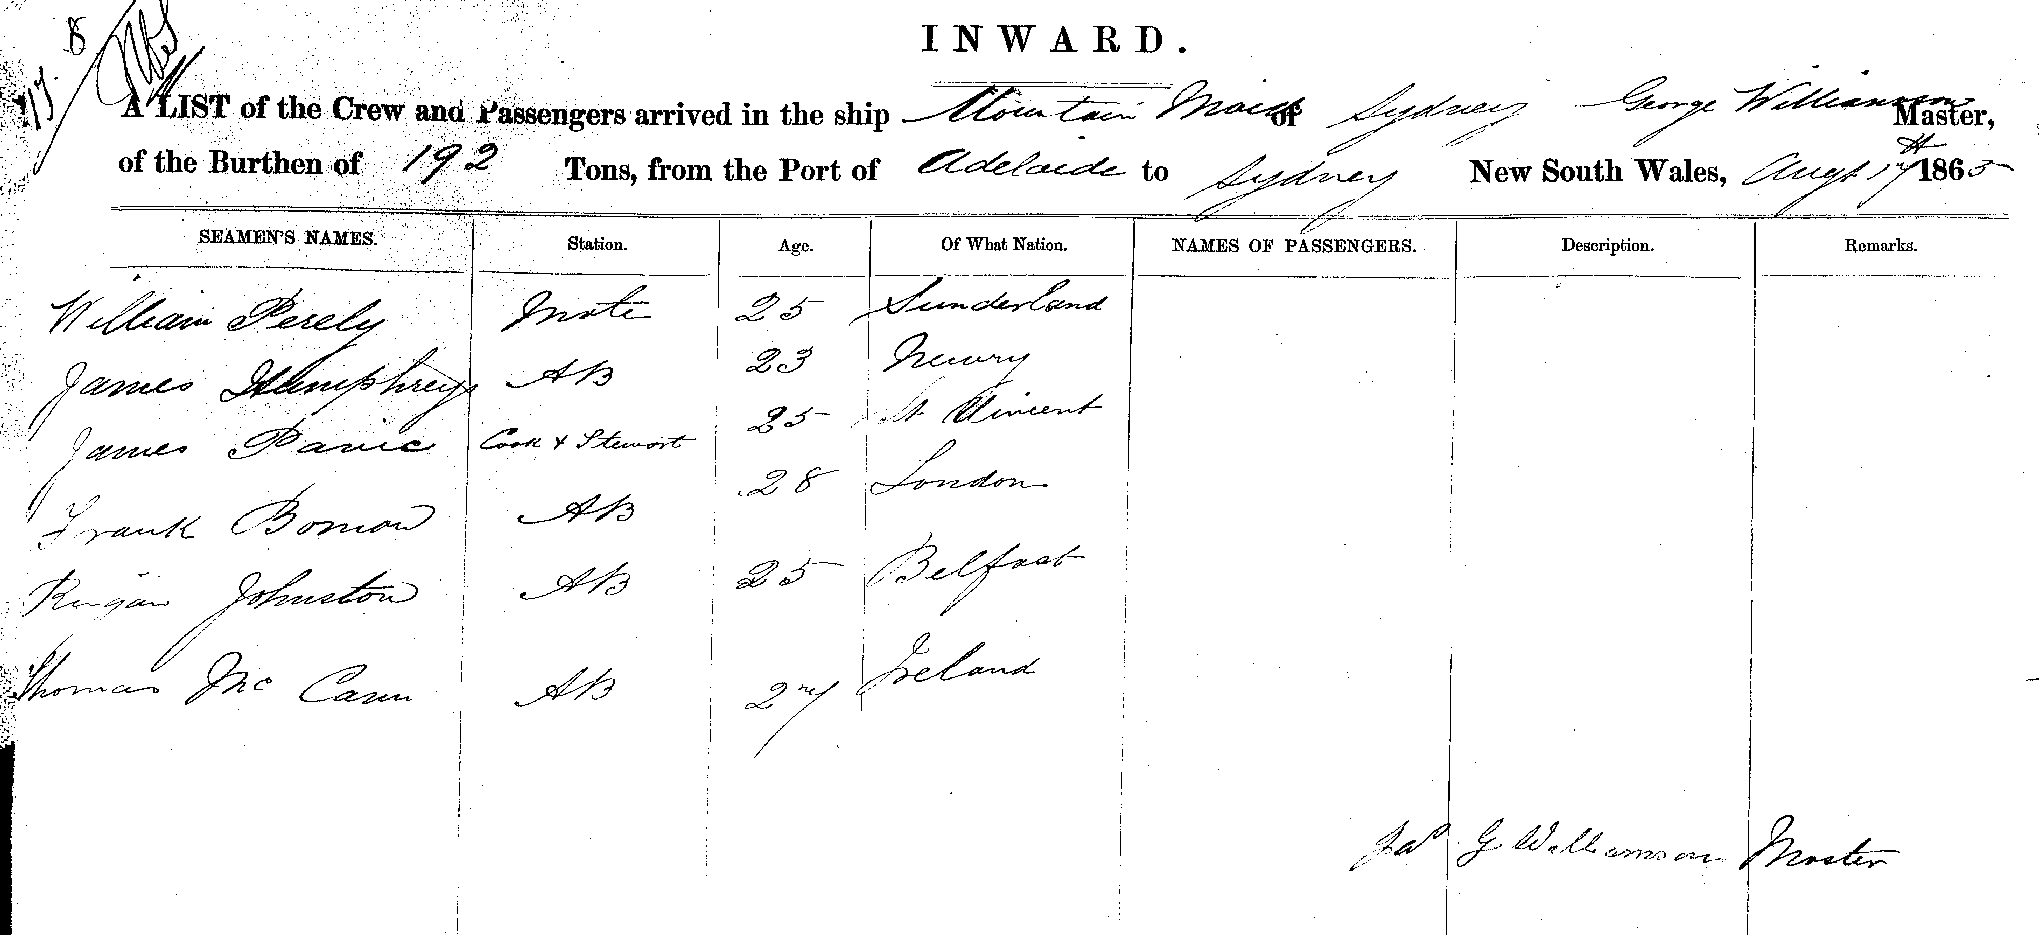 INWARD.
A LIST of the Crew and Passengers arrived in the ship Mountain Maid of Sydney George Williamson Master,
of the Burthen of 192 Tons, from the Port of Adelaide to Sydney New South Wales, Augt 17th 1865
SEAMEN'S NAMES. Station. Age. Of What Nation. NAMES OF PASSENGERS. Description. Remarks.
William Perely Mate 25 Sunderland
James Humphreys AB 23 Newry
James Panic Cook & Stewort 25 St Vincent
Frank AB 28 London
Johnston AB 25 Belfast
Thomas Mc Cann AB 27 Ireland
Jas G Williamson Master